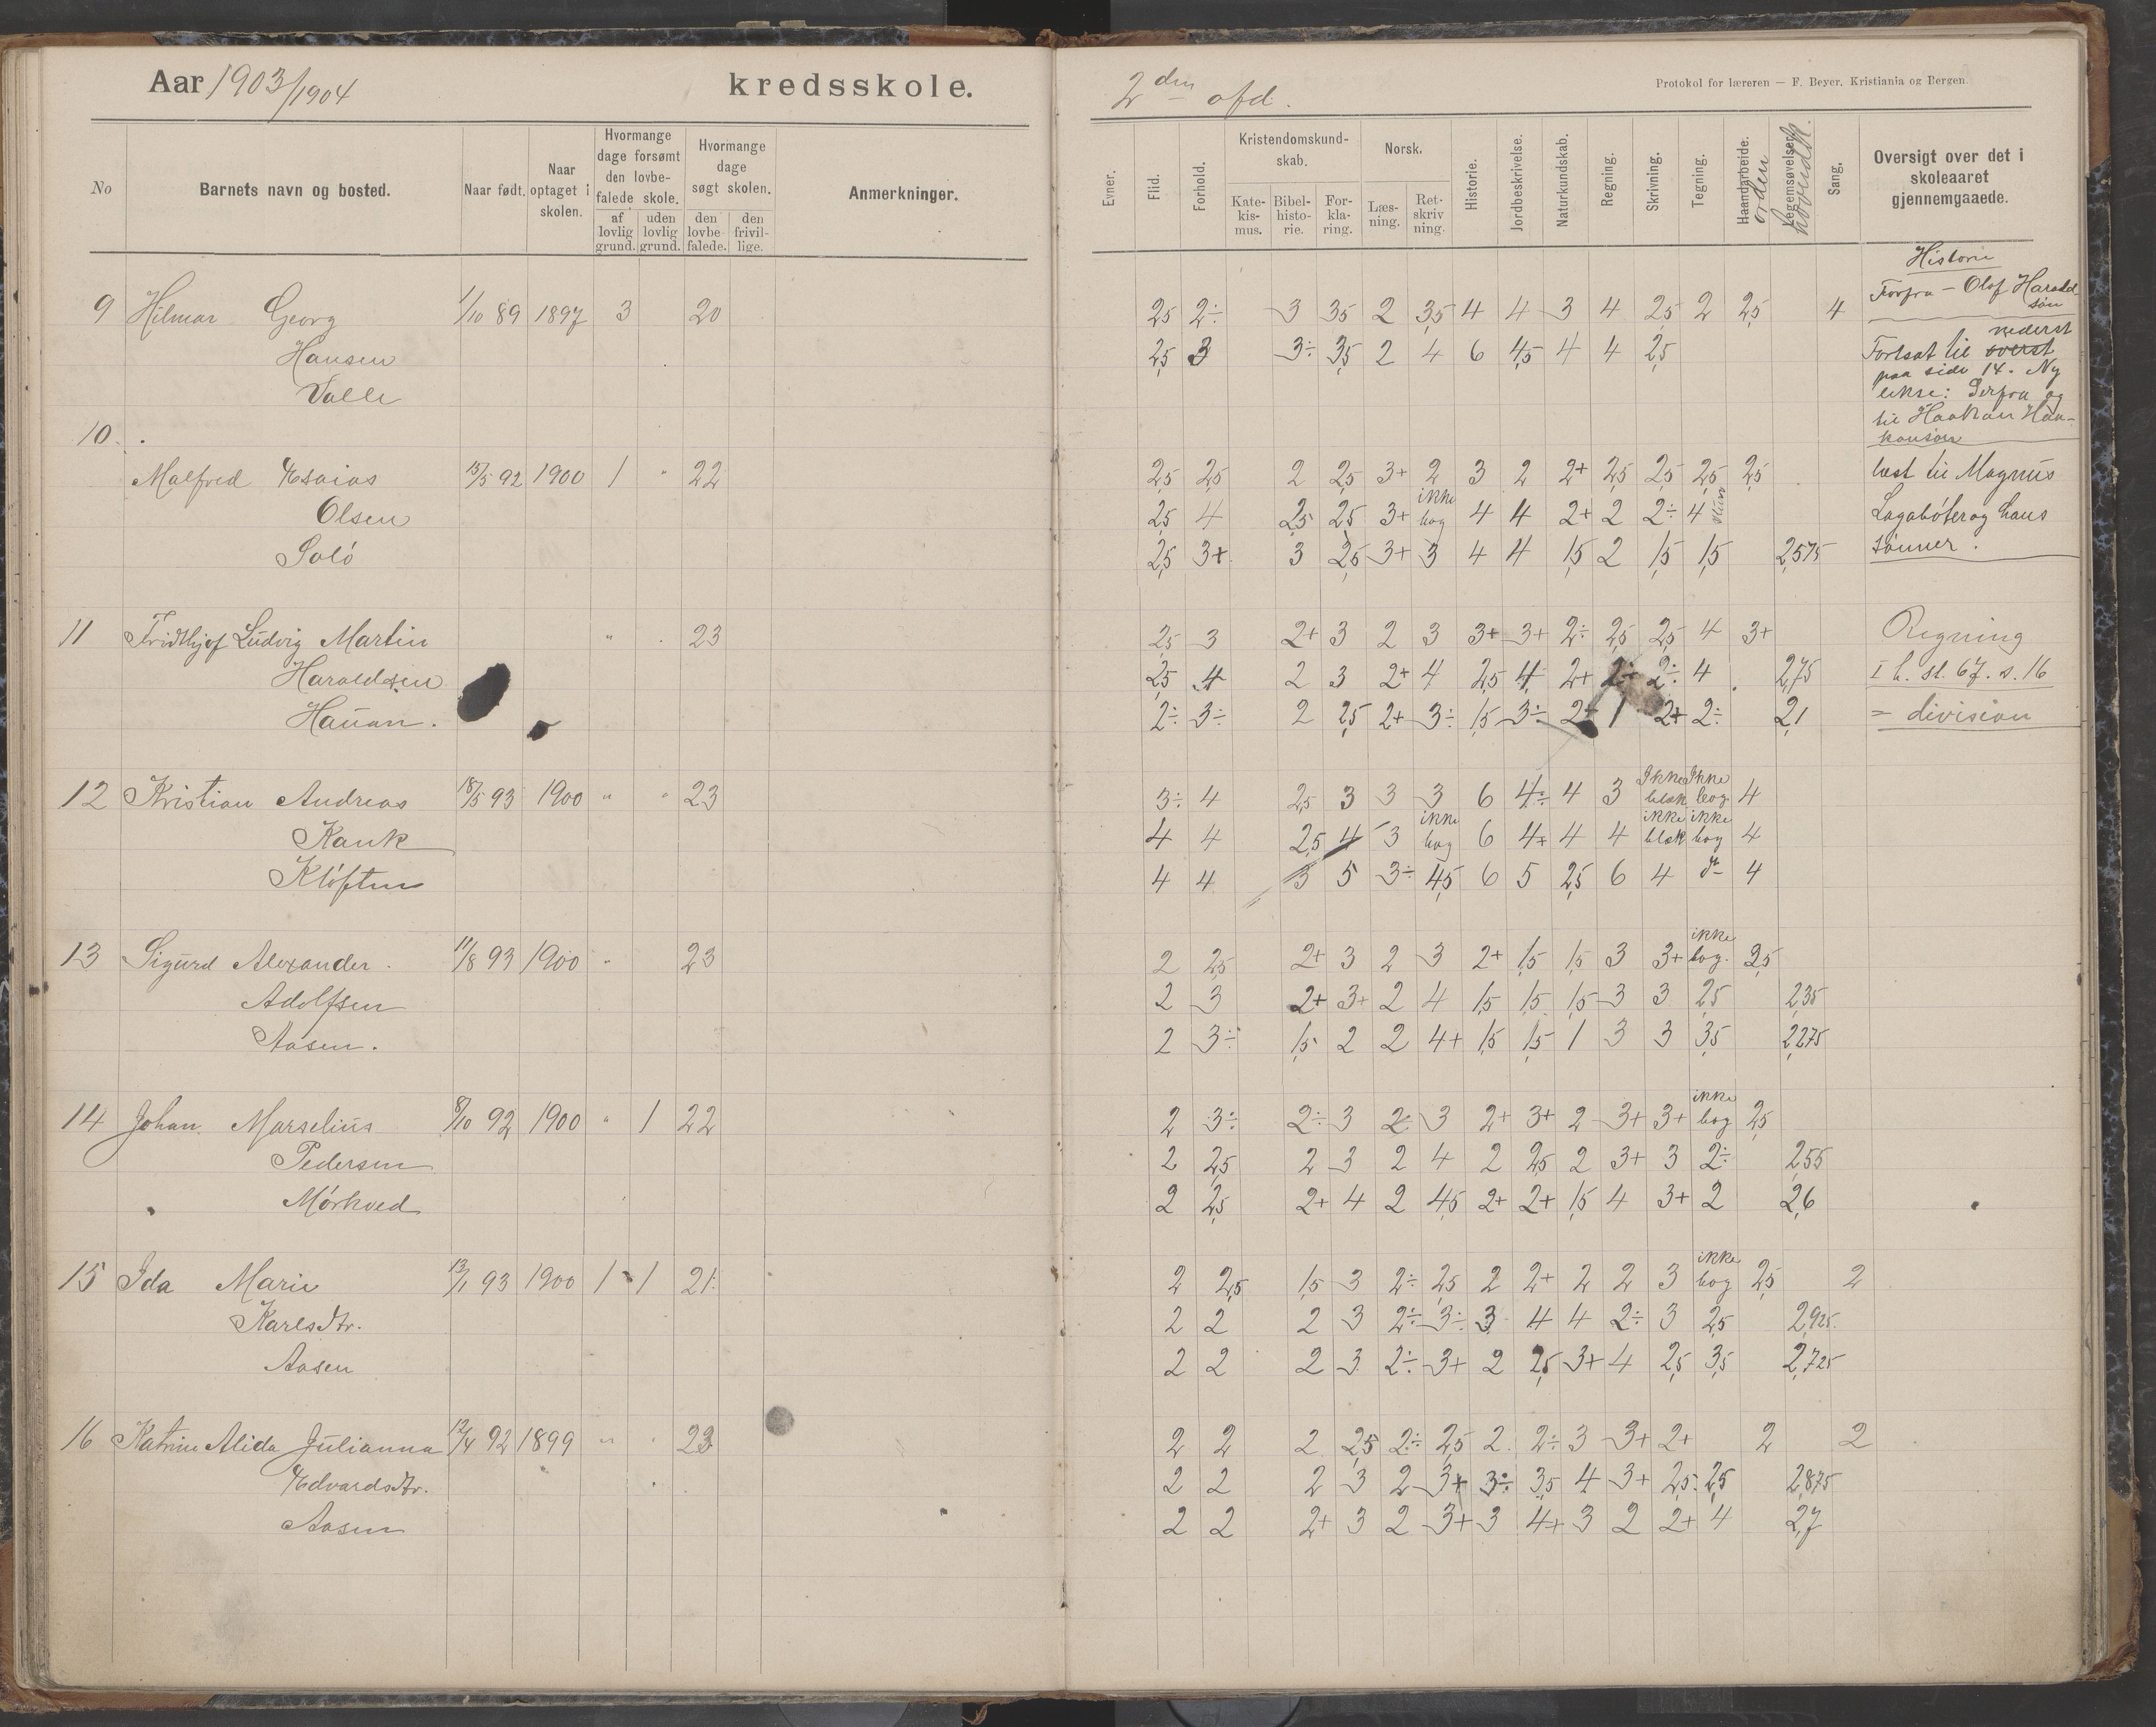 Aar 1903/1904 kredsskole.
2den afd.
Protokol for læreren — F. Beyer, Kristiania og Bergen.
No
Barnets navn og bosted.
Naar født.
Naar optaget i skolen.
Hvormange dage forsømt den lovbefalede skole.
af lovlig grund.
uden lovlig grund.
Hvormange dage søgt skolen.
den lovbefalede.
den frivillige.
Anmerkninger.
Evner.
Flid.
Forhold.
Kristendomskundskab.
Katekismus.
Bibelhistorie.
Forklaring.
Norsk.
Læsning.
Retskrivning.
Historie.
Jordbeskrivelse.
Naturkundskab.
Regning.
Skrivning.
Tegning.
Haandarbeide.
orden
Legemsøvelser.
hovedk.
Sang.
Oversigt over det i skoleaaret gjennemgaaede.
9 Hilmar Georg 1/10 89 1897 3 20
2,5 2÷ 3 3,5 2 3,5 4 4 3 4 2,5 2 2,5 4
Hansen
2,5 3 3÷ 3,5 2 4 6 4,5 4 4 2,5
Valle
Historie
Forfra — Olaf Haralds-
søn
nederst
Fortsat til øverst
paa side 14. Ny
lekse: Derfra og
til Haakan Haa-
konsøn
10.
Malfred Esaias 15/5 92 1900 1 " 22
2,5 2,5 2 2,5 3+ 2 3 2 2+ 2,5 2,5 2,5 2,5
læst til Magnus
Olsen
2,5 4 2,5 2,5 3+ ikke bog 4 4 2+ 2 2÷ 4
Lagabøter og hans
Solö
2,5 3+ 3 2,5 3+ 3 4 4 1,5 2 1,5 1,5 2,575
sønner.
11 Fridthjof Ludvig Martin " 23
2,5 3 2+ 3 2 3 3+ 3+ 2÷ 2,5 2,5 4 3+
Regning
Haraldsen
2,5 4 2 3 2+ 4 2,5 4 2+ 2÷ 2÷ 4 2,75
I h. st. 67. s. 16
Hauan.
2÷ 3÷ 2 2,5 2+ 3÷ 1,5 3÷ 2+ 1 2+ 2÷ 2,1
= division
12 Kristian Andreas 18/5 93 1900 " " 23
3÷ 4 2,5 3 3 3 6 4÷ 4 3 Ikke blæk Ikke bog 4
Kank
4 4 2,5 4 3 ikke bog 6 4+ 4 4 ikke blæk ikke bog 4
Kløften
4 4 3 5 3÷ 4,5 6 5 2,5 6 4 do 4
13 Sigurd Alexander 11/8 93 1900 " 23
2 2,5 2+ 3 2 3 2+ 1,5 1,5 3 3+ ikke bog. 2,5
Adolfsen
2 3 2+ 3+ 2 4 1,5 1,5 1,5 3 3 2,5 2,35
Aasen.
2 3÷ 1,5 2 2 4+ 1,5 1,5 1 3 3 3,5 2,275
14 Johan Marselius 8/10 92 1900 " 1 22
2 3÷ 2÷ 3 2 3 2+ 3+ 2 3+ 3+ ikke bog 2,5
Pedersen
2 2,5 2 3 2 4 2 2,5 2 3+ 3 2÷ 2,55
Mørkved
2 2,5 2+ 4 2 4,5 2+ 2+ 1,5 4 3+ 2 2,6
15 Ida Marie 13/1 93 1900 1 1 21
2 2,5 1,5 3 2÷ 2,5 2 2+ 2 2 3 ikke bog 2,5 2
Karlsdtr.
2 2 2 3 2÷ 3÷ 3 4 4 2÷ 3 2,5 2,925.
Aasen
2 2 2 3 2÷ 3+ 2 2,5 3+ 4 2,5 3,5 2,725
16 Katrine Alida Julianna 12/4 92 1899 " " 23
2 2 2 2,5 2÷ 2,5 2 2÷ 3 3+ 2+ 2 2
Edvardsdtr.
2 2 2 3 2 3+ 3÷ 3,5 4 3+ 2,5 2,5 2,875
Aasen
2 2 2+ 3 2 3+ 3 4+ 3 2 2+ 4 2,7